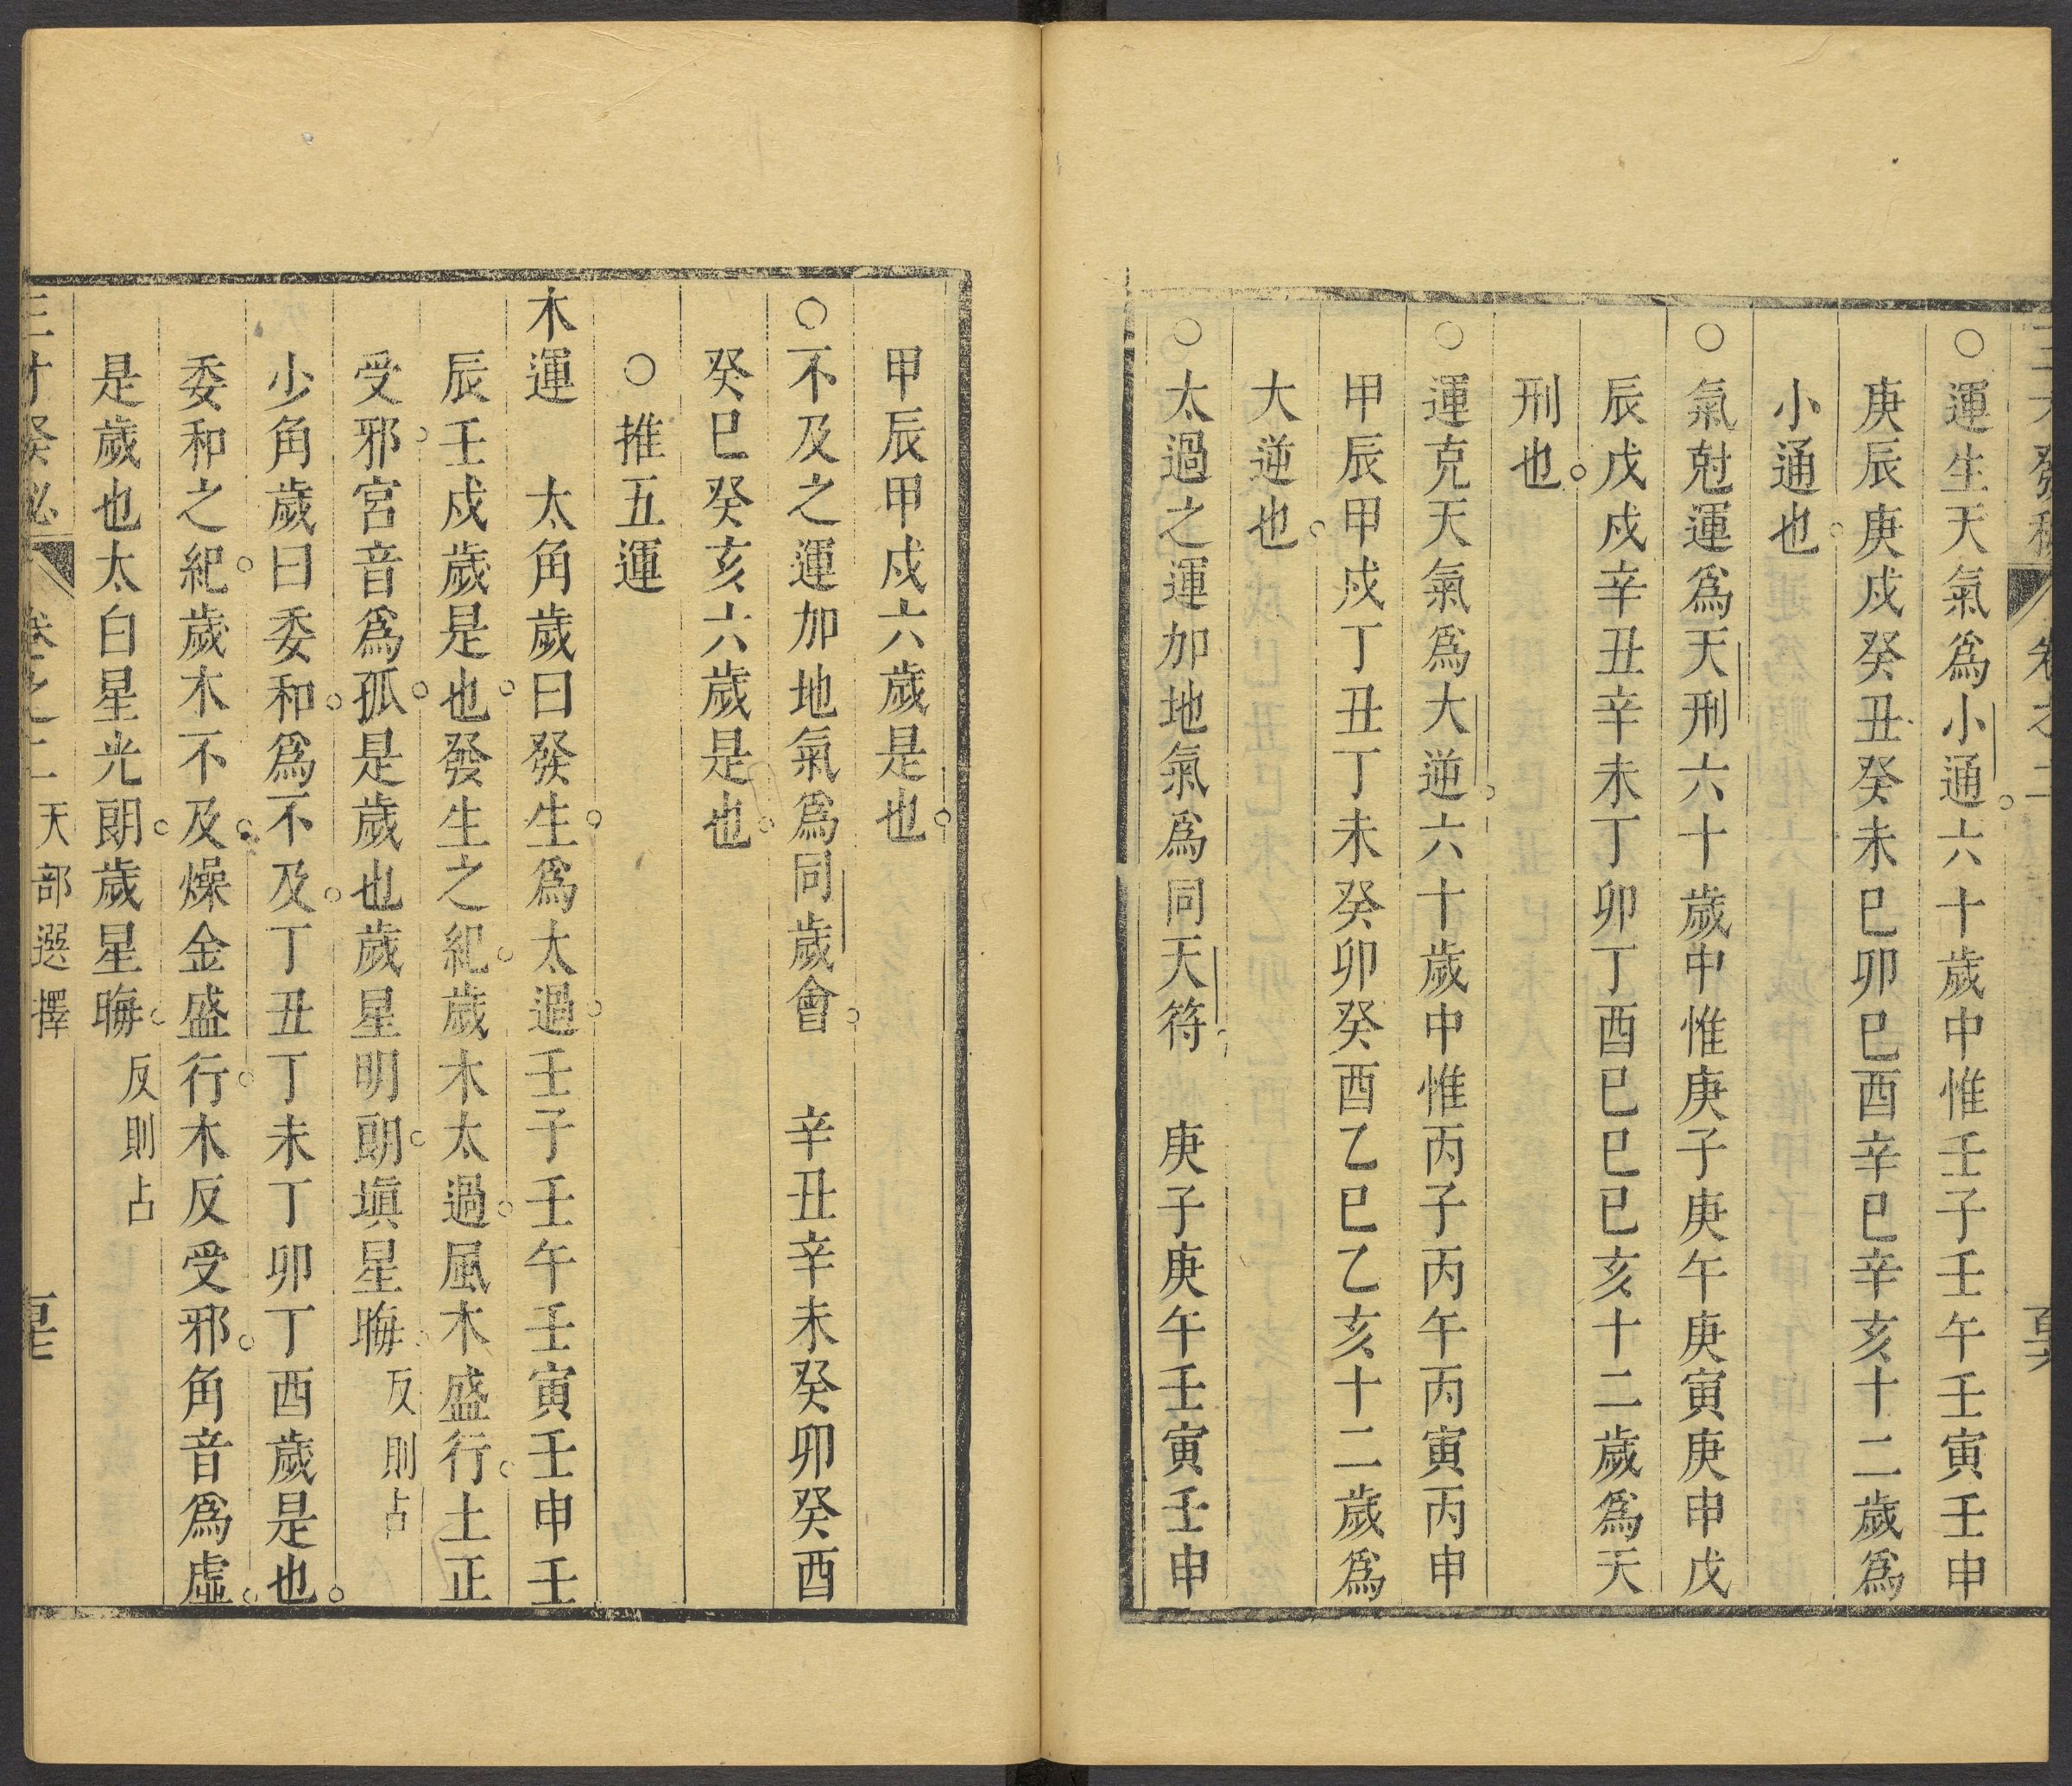 三才發秘 卷之二
○運生天氣爲小通六十歲中惟壬子壬午壬寅壬申
庚辰庚戌癸丑癸未巳卯巳酉辛巳辛亥十二歲爲
小通也
○氣尅運爲天刑六十歲中惟庚子庚午庚寅庚申戊
辰戊戌辛丑辛未丁卯丁酉巳巳巳亥十二歲爲天
刑也
○運克天氣爲大逆六十歲中惟丙子丙午丙寅丙申
甲辰甲戌丁丑丁未癸卯癸酉乙巳乙亥十二歲爲
大逆也
○太過之運加地氣爲同天符 庚子庚午壬寅壬申
甲辰甲戌六歲是也
○不及之運加地氣爲同歲會 辛丑辛未癸卯癸酉
癸巳癸亥六歲是也
○推五運
木運 太角歲曰發生爲太過壬子壬午壬寅壬申壬
辰壬戌歲是也發生之紀歲木太過風木盛行土正
受邪宮音爲孤是歲也歲星明朗塡星晦反則占
少角歲曰委和爲不及丁丑丁未丁卯丁酉歲是也
委和之紀歲木不及燥金盛行木反受邪角音爲虛
是歲也太白星光朗歲星晦反則占
三才發秘 卷之二 天部選擇